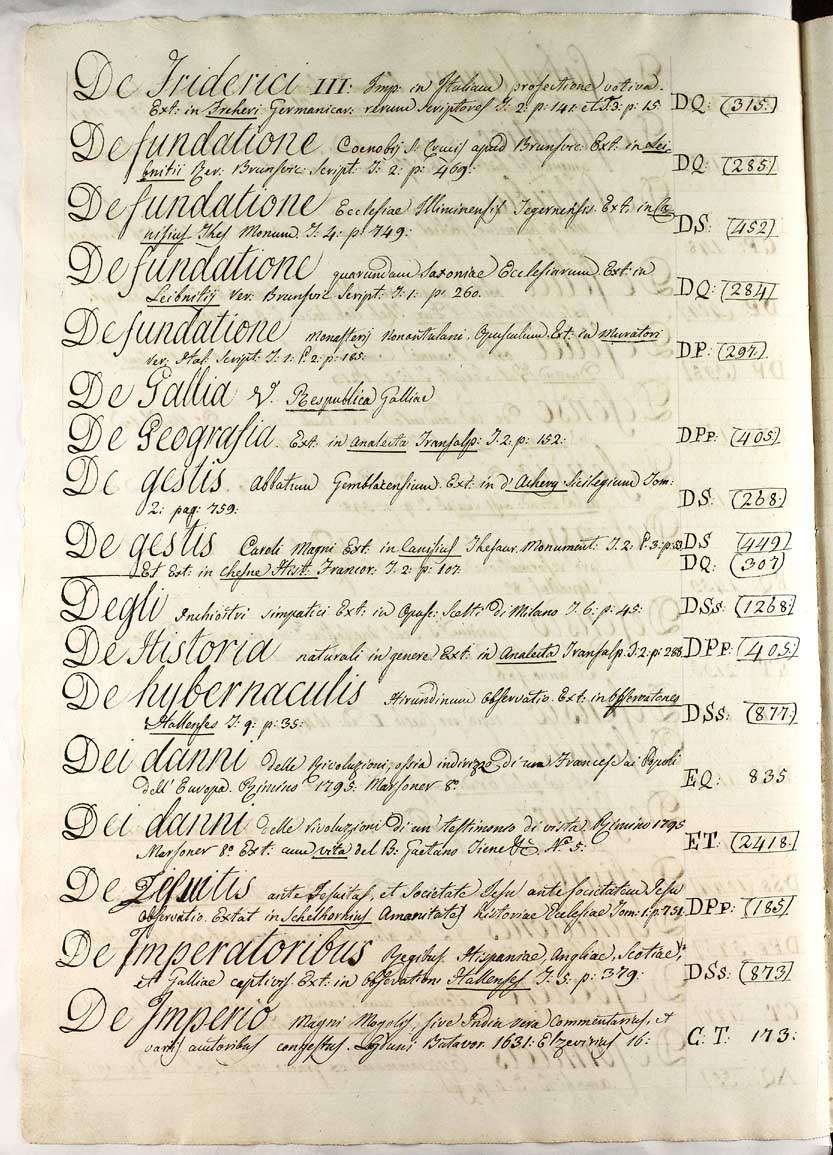 De Friderici III: Imp: in Italiam profectione votiva.
Ext: in Freheri Germanicar: rerum scriptores T: 2: p: 141: et T: 3: p: 15 DQ: (315:)
De fundatione Coenobij S: Crucis apud Brunsvic: Ext: in Lei
bnitii Rer: Brunsvic: Script: T: 2: p: 469: DQ: (285:)
De fundatione Ecclesiae Illiminensis Tegernensis. Ext: in Ca
nisius Thes Monum. T: 4: p: 749: DS: (452)
De fundatione quarundam Saxoniae Ecclesiarum. Ext: in
Leibnitij rer: Brunsvic Script: T: 1: p: 260. DQ: (284)
De fundatione Monasterij Nonantulani. Opusculum. Ext: in Muratori
rer: Ital: Script: T: 1: P: 2: p: 185: DP: (297)
De Gallia V. Respublica Galliae
De Geografia. Ext: in Analecta Transalp: T: 2: p: 152: DPp: (405)
De gestis Abbatum Gemblacensium. Ext: in d'Achery Sicilegium Tom:
2: pag: 759: DS: (268:)
De gestis Caroli Magni Ext: in Canisius Thesaur. Monument: T: 2: P: 3: p: 53 DS (449)
Et Ext: in Chesne Hist: Francor: T: 2: p: 107: DQ: (307)
Degli Inchiostri simpatici Ext: in Opusc: Scelti di Milano T: 6: p: 45: DSs: (1268:)
De Historia naturali in genere Ext: in Analecta Transalp: T: 2: p: 288 DPp: (405:)
De hybernaculis Hirundinum Observatio. Ext: in Observationes
Hallenses T: 9: p: 35: DSs: (877:)
Dei danni delle Rivoluzioni, ossia indirizzo di un Francese ai Popoli
dell' Europa. Rimino 1795: Marsoner 8º EQ: 835
Dei danni delle rivoluzioni di un testimonio di vista. Rimino 1795
Marsoner 8º Ext: cum vita del B: Gaetano Tiene &c: Nº 5: ET: (2418:)
De Jesuitis ante Jesuitas, et Societate Jesu ante Societatem Jesu
Observatio. Extat in Schelhornius Amanitates historiae Ecclesiae Tom: 1: p: 751. DPp: (185)
De Imperatoribus Regibus Hispaniae, Angliae, Scotiae,
et Galliae captivis. Ext: in Observation: Hallenses T: 5: p: 379: DSs: (873)
De Imperio Magni Mogolis, sive India vera Commentarius, et
varijs auctoribus congestus. Lugduni Batavor. 1631: Elzevirius 16: C: T: 173: